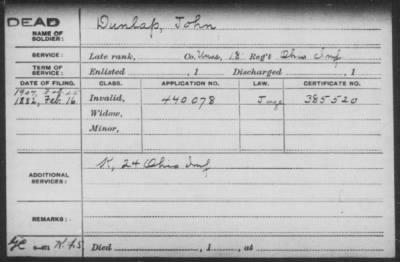 DEAD
NAME OF SOLDIER: Dunlap, John
SERVICE: Late rank, Co. Unas. 18 Reg't Ohio Inf
TERM OF SERVICE: Enlisted , 1 Discharged , 1
DATE OF FILING. CLASS. APPLICATION NO. LAW. CERTIFICATE NO.
1907,
1882, Feb. 16 Invalid, 440078 385520
Widow,
Minor,
ADDITIONAL SERVICES: K, 24 Ohio Inf
REMARKS:
Died , 1 , at